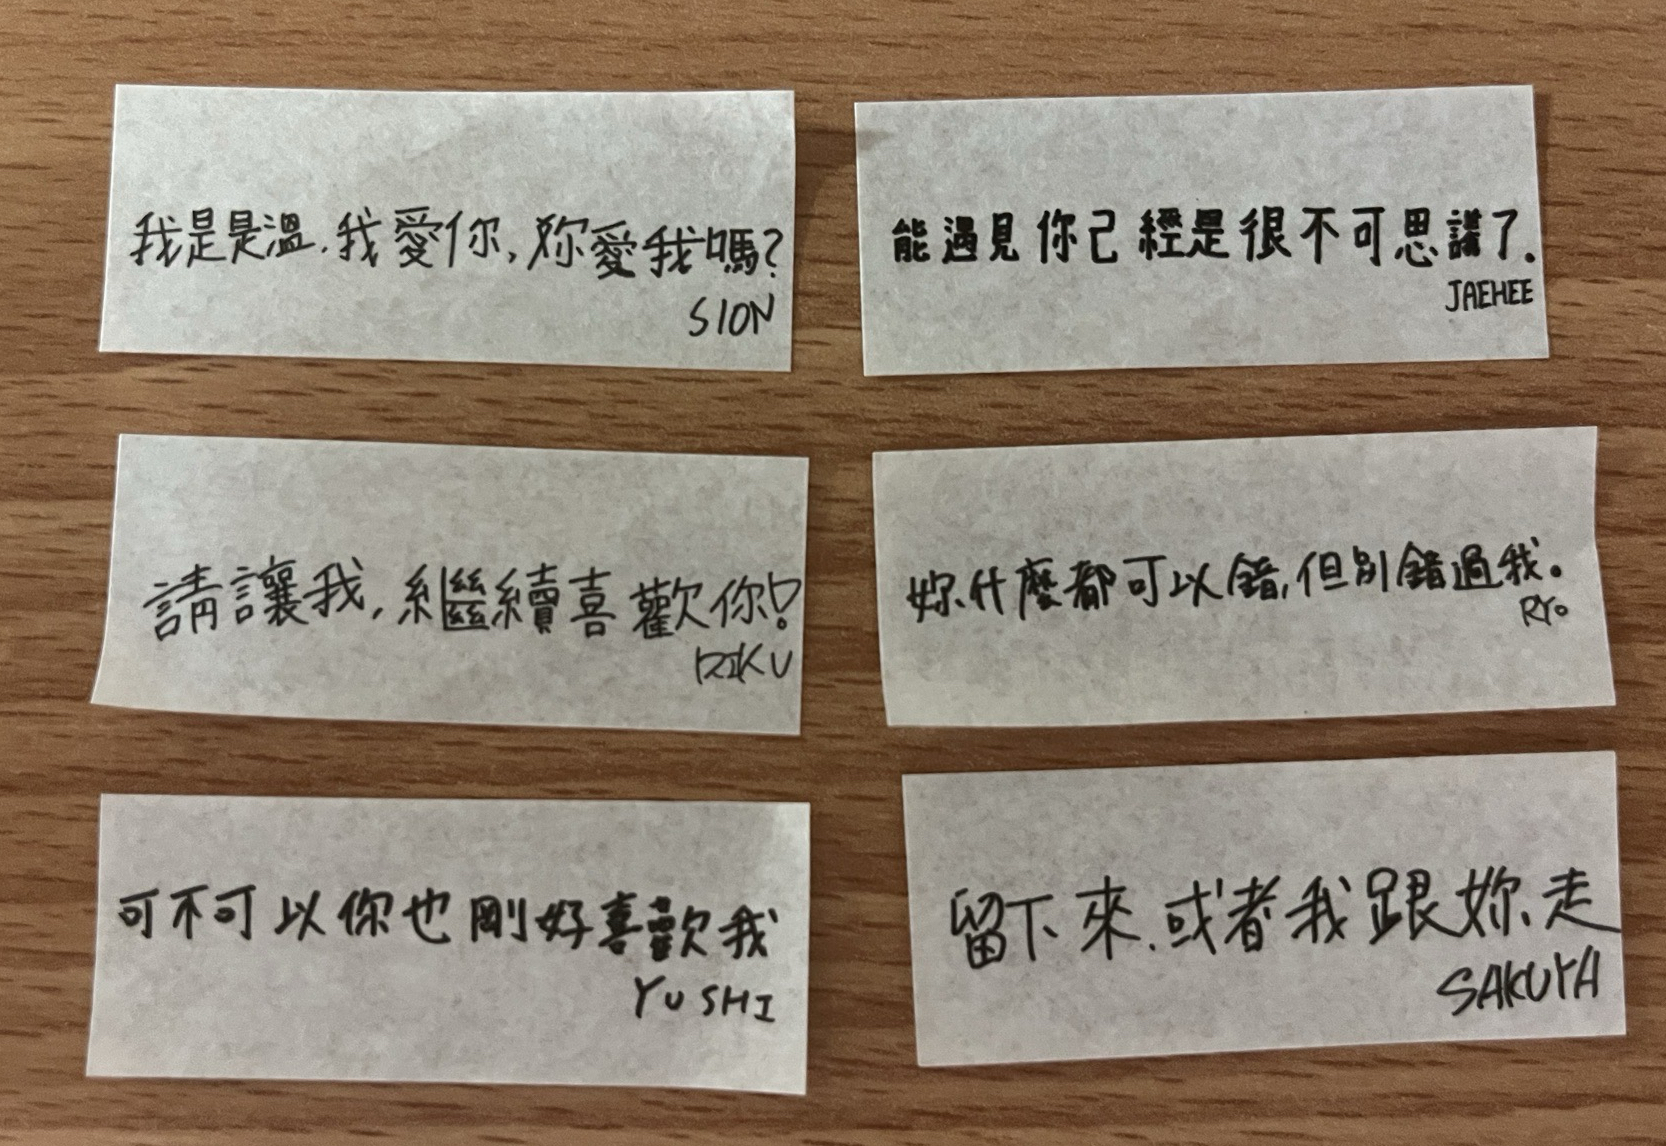 我是是溫.我愛你,妳愛我嗎?
SION
能遇見你已經是很不可思議了.
JAEHEE
請讓我,繼續喜歡你!
RIKU
妳什麼都可以錯,但別錯過我。
RYO
可不可以你也剛好喜歡我
YUSHI
留下來.或者我跟妳走
SAKUYA